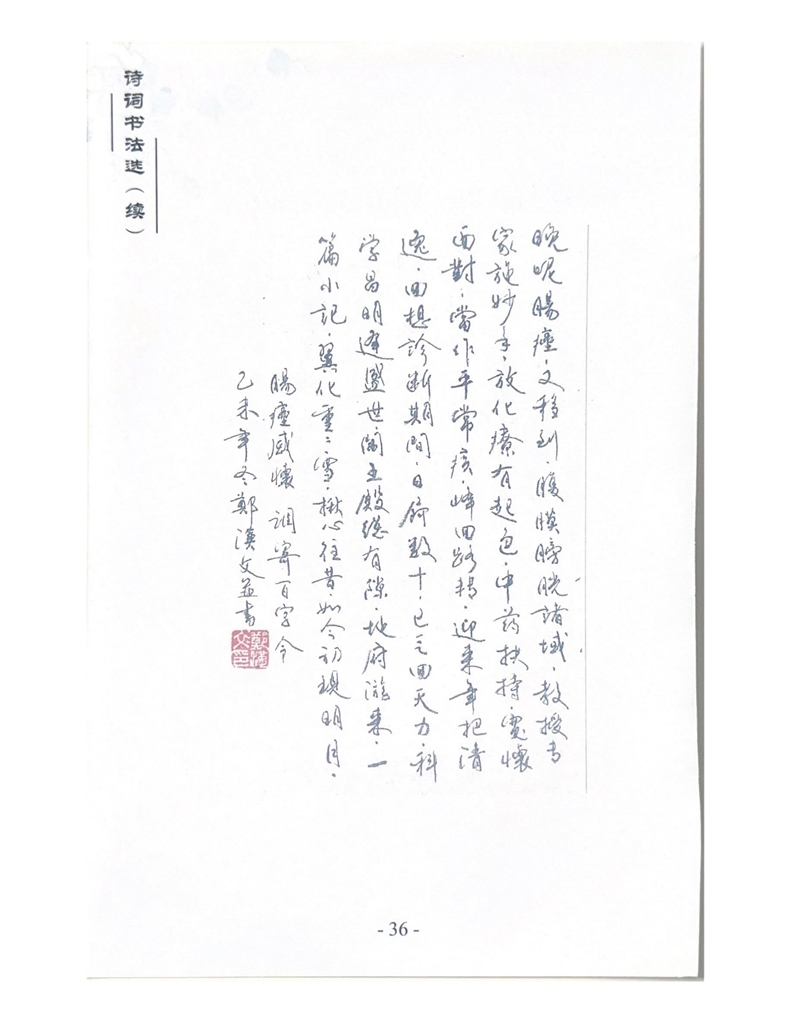 诗词书法选（续）
晚呢腸癌，又移到，腹膜膀胱諸域，教授专
家施妙手，放化療有起色，中药扶持，寬懷
面對，當作平常疾，峰回路转，迎来年把清
逸，回想診斷期間，日瘠数十，已乏回天力，科
学昌明逢盛世，阎王殿總有隙，地府游来，一
篇小記，翼化重重雪，揪心往昔，如今初現明月，
腸癌感懷 調寄百字令
乙未年冬鄭漢文并書
- 36 -